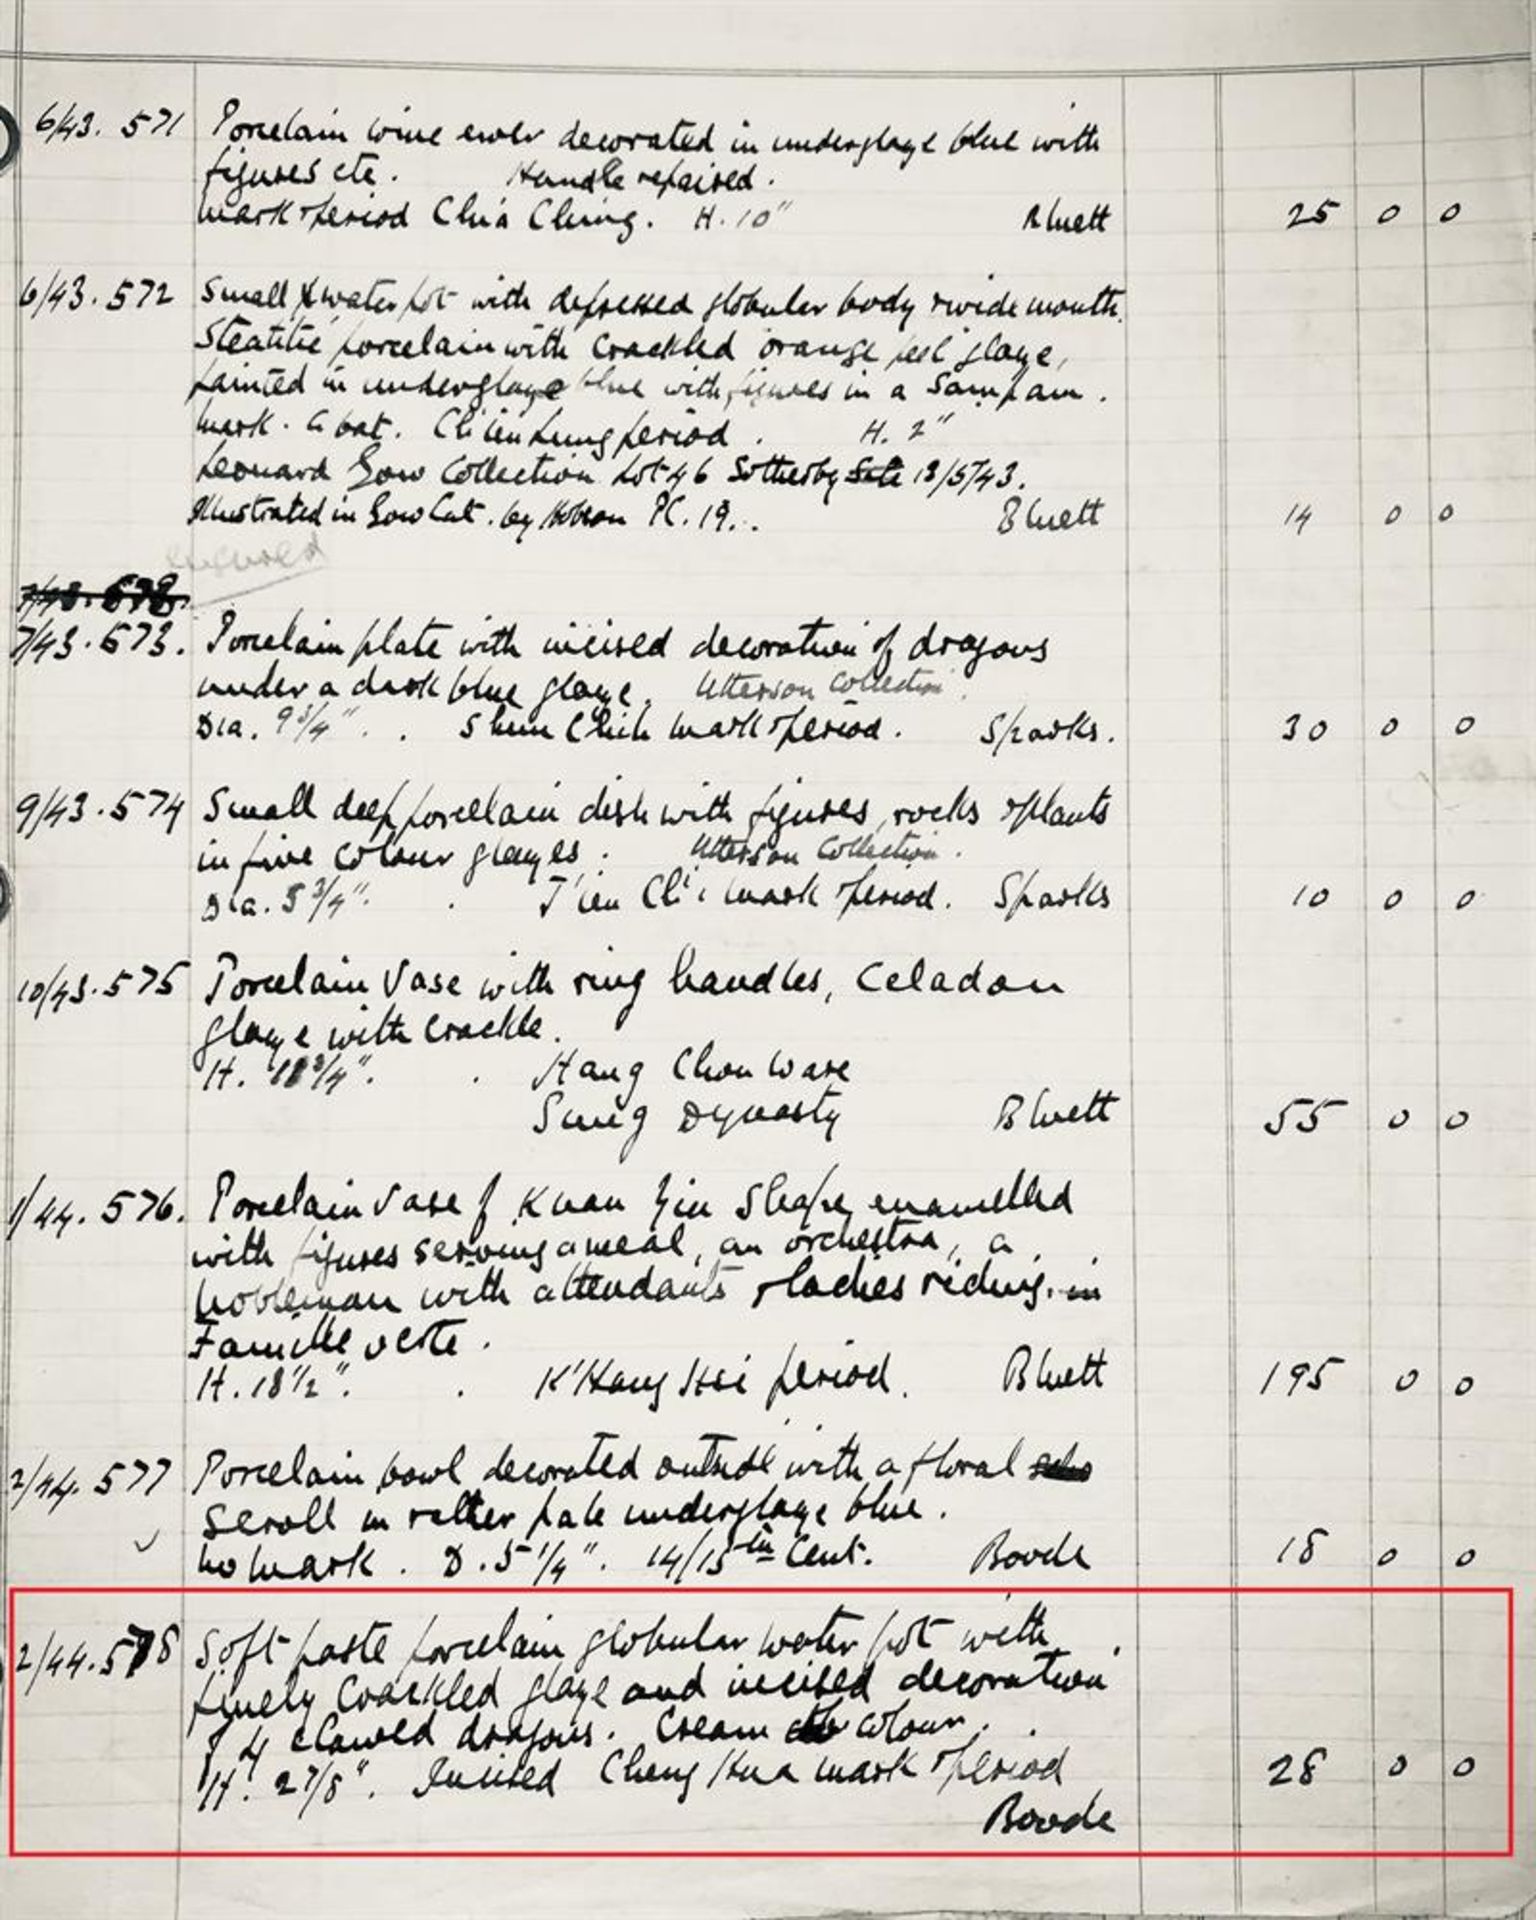 6/43. 571 Porcelain wine ewer decorated in underglaze blue with
figures etc. Handle repaired.
mark & period Chia Ching. H. 10" Bluett 25 0 0
6/43. 572 Small water pot with depressed globular body & wide mouth.
Steatitic porcelain with crackled orange peel glaze,
painted in underglaze blue with figures in a Sampan.
mark. a bat. Ch'ien Lung period. H. 2"
Leonard Gow Collection Lot 46 Sotheby Sale 13/5/43.
Illustrated in Gow Cat. by Hobson Pl. 19. Bluett 14 0 0
7/43. 573. Porcelain plate with incised decoration of dragons
under a dark blue glaze. Utterson Collection.
Dia. 9 3/4". Shun Chih mark & period. Sparks. 30 0 0
9/43. 574 Small deep porcelain dish with figures, rocks & plants
in five colour glazes. Utterson Collection.
Dia. 5 3/4". T'ien Ch'i mark & period. Sparks 10 0 0
10/43. 575 Porcelain Vase with ring handles, Celadon
glaze with crackle.
H. 3/4". Hang Chou Ware
Sung Dynasty Bluett 55 0 0
1/44. 576. Porcelain Vase of Kuan Yin Shape, enamelled
with figures serving a meal, an orchestra, a
nobleman with attendants & ladies riding. in
Famille verte.
H. 18 1/2". K'Hang Hsi period. Bluett 195 0 0
2/44. 577 Porcelain bowl decorated outside with a floral
scroll in rather pale underglaze blue.
no mark. D. 5 1/4". 14/15th Cent. Boode 18 0 0
2/44. 578 Soft paste porcelain globular water pot with
finely crackled glaze and incised decoration
of 4 clawed dragons. Cream colour.
H. 2 7/8". Incised Cheng Hua mark & period 28 0 0
Boode